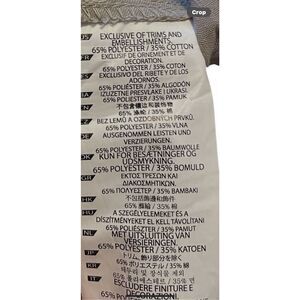 Crop
EXCLUSIVE OF TRIMS AND
EMBELLISHMENTS.
65% POLYESTER / 35% COTTON
EXCLUSIF DE ORNEMENT ET DE
DECORATION.
65% POLYESTER / 35% COTON
EXCLUSIVO DEL RIBETE Y DE LOS
ADORNOS.
65% POLIÉSTER / 35% ALGODON
IZUZETNE PRESVLAKE I UKRASI.
65% POLIESTER / 35% PAMUK
不包含镶边和装饰物
65% 涤纶 / 35% 棉
BEZ LEMŮ A OZDOBNÝCH PRVKŮ.
65% POLIÉSTER / 35% VLNA
AUSGENOMMEN LEISTEN UND
VERZIERUNGEN.
65% POLYESTER / 35% BAUMWOLLE
KUN FOR BESÆTNINGER OG
UDSMYKNING.
65% POLYESTER / 35% BOMULD
ΕΚΤΟΣ ΤΡΕΣΩΝ ΚΑΙ
ΔΙΑΚΟΣΜΗΤΙΚΩΝ.
65% ΠΟΛΥΕΣΤΕΡ / 35% ΒΑΜΒΑΚΙ
不包括飾邊和裝飾
65% 滌綸 / 35% 棉
A SZEGÉLYELEMEKET ÉS A
DÍSZÍTMÉNYEKET EL KELL TÁVOLÍTANI
65% POLIÉSZTER / 35% PAMUT
MET UITSLUITING VAN
VERSIERINGEN.
65% POLYESTER / 35% KATOEN
トリム、飾り部分を除く
65% ポリエステル / 35% 綿
테두리 및 장식물 제외
65% 폴리에스테르 / 35% 면
ESCLUDERE FINITURE E
DECORAZIONI.